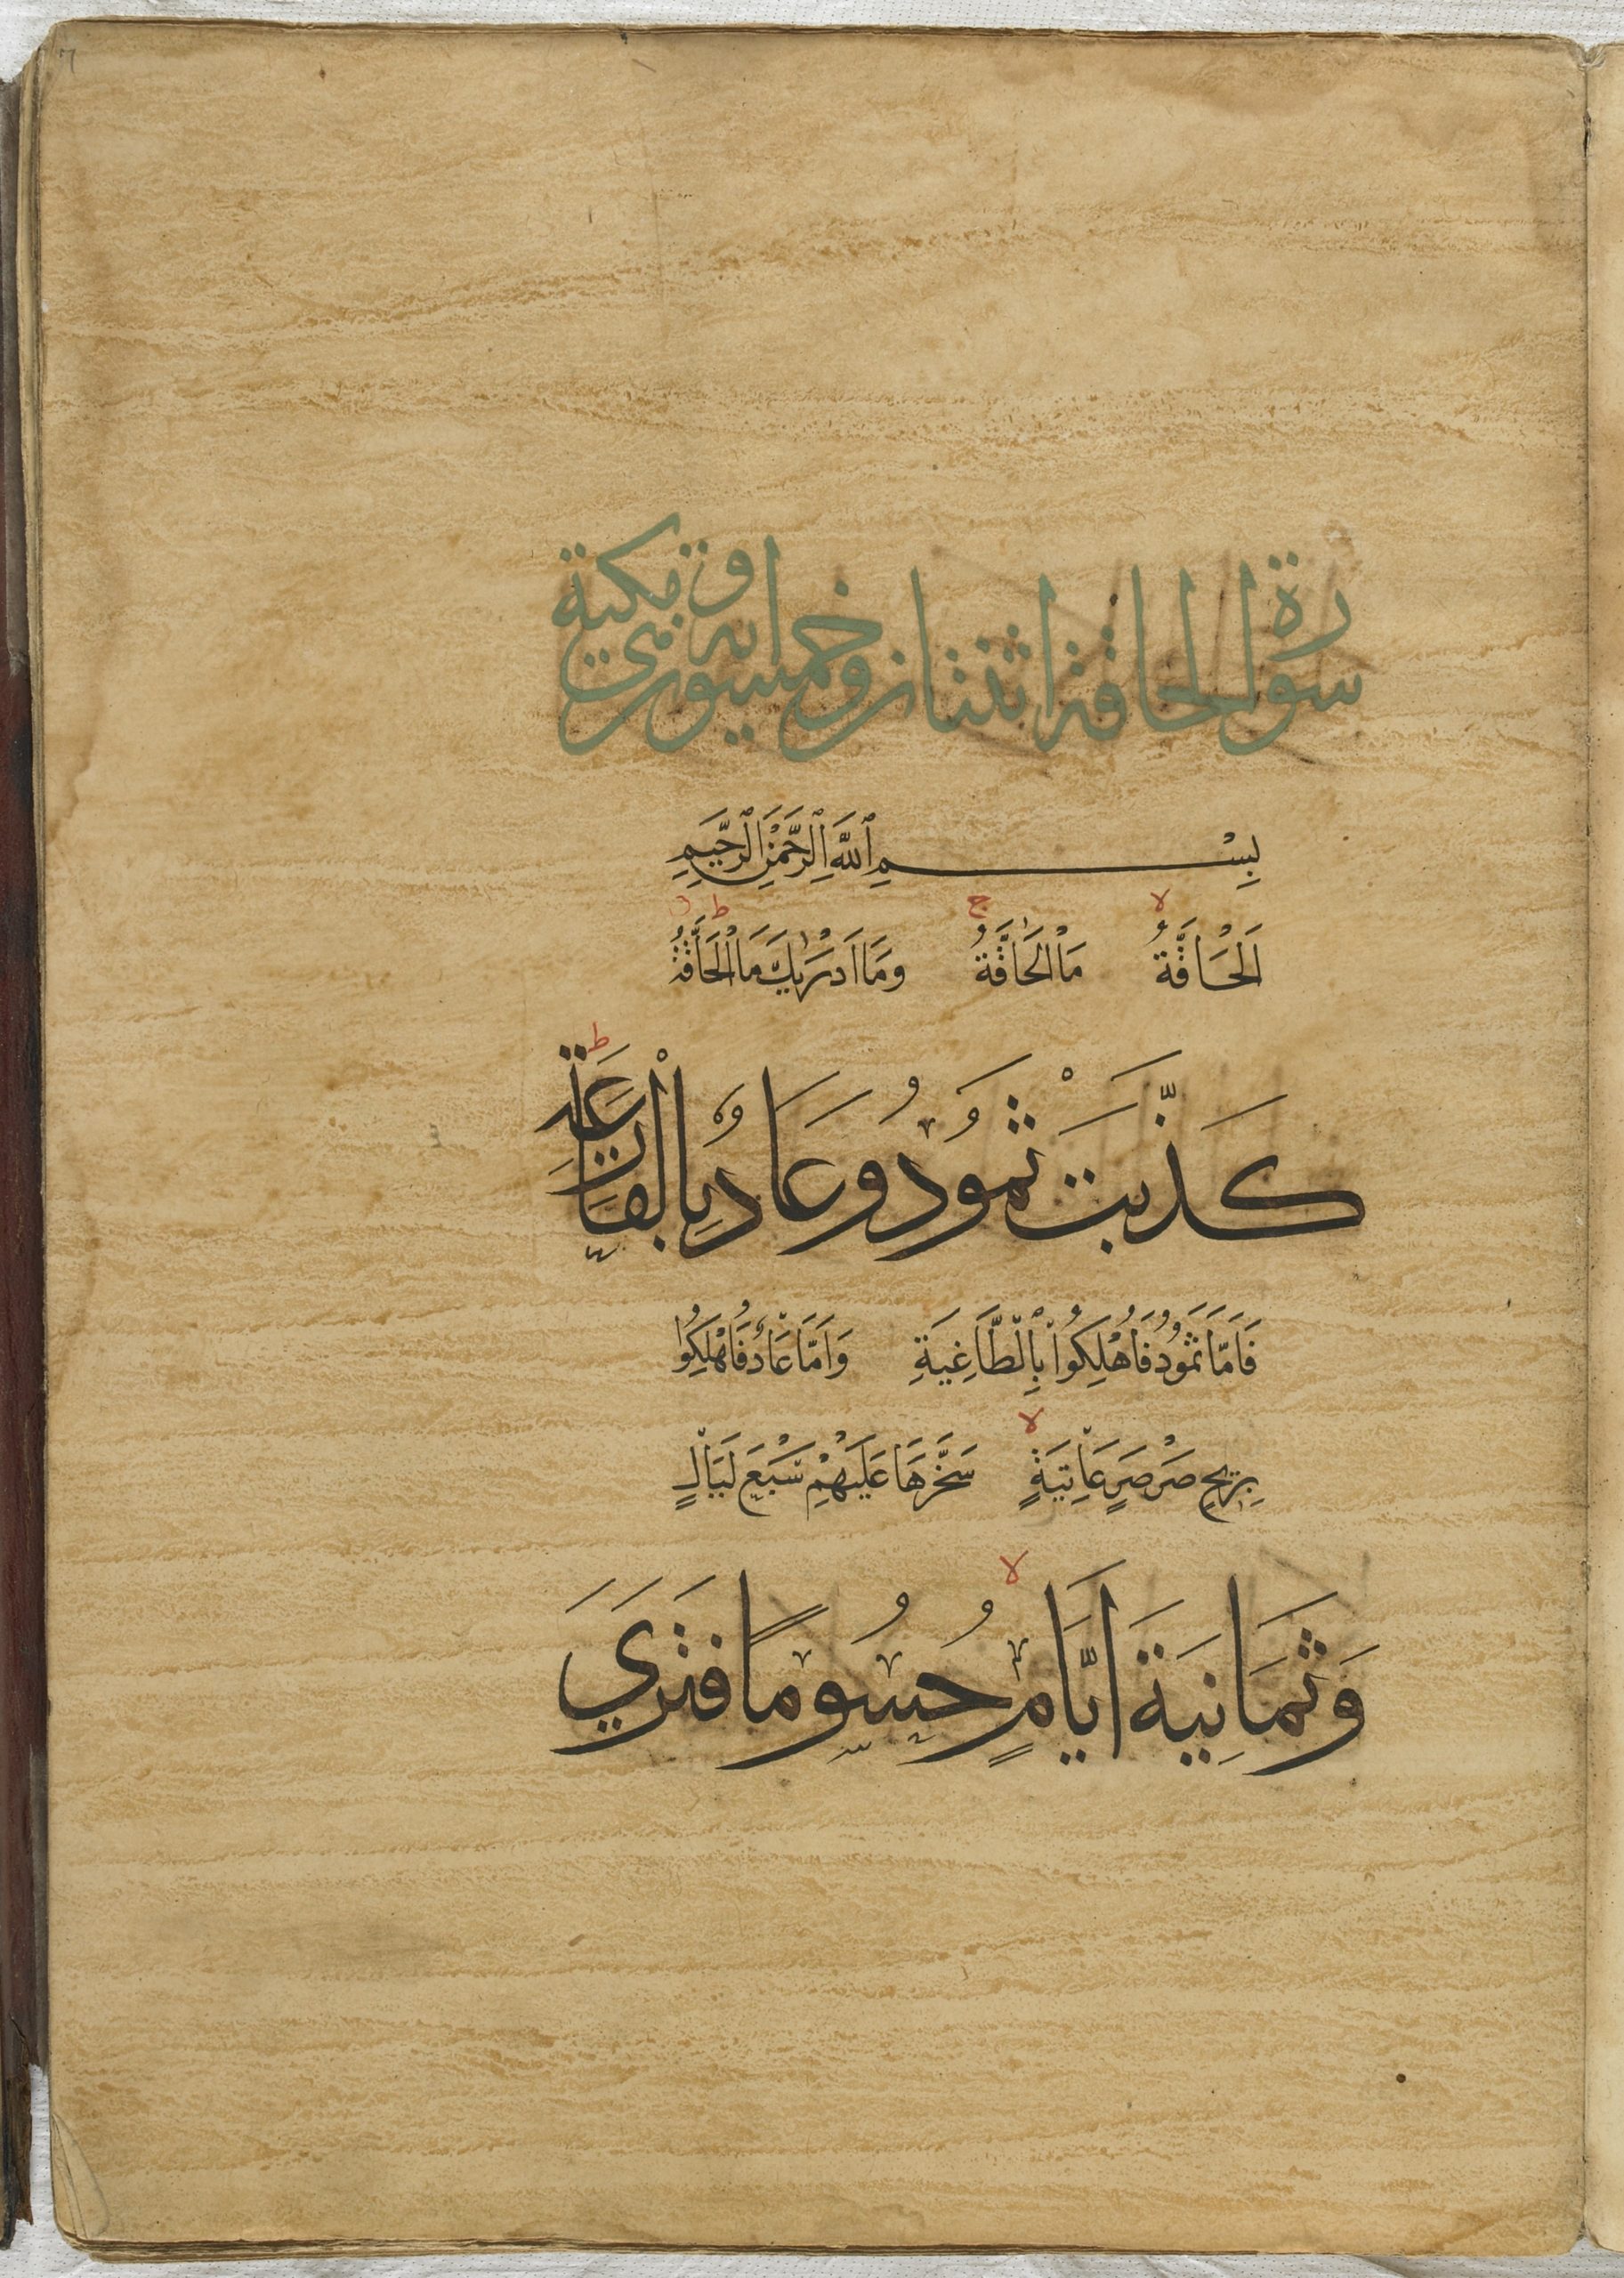 سورة الحاقة اثنتان وخمسون اية وهي مكية
بِسْمِ ٱللَّهِ ٱلرَّحْمَٰنِ ٱلرَّحِيمِ
اَلْحَاقَّةُ مَا الْحَاقَّةُ وَمَا اَدْرٰيكَ مَا الْحَاقَّةُ
كَذَّبَتْ ثَمُودُ وَعَادٌ بِالْقَارِعَةِ
فَاَمَّا ثَمُودُ فَاُهْلِكُوا بِالطَّاغِيَةِ وَاَمَّا عَادٌ فَاُهْلِكُوا
بِرِيحٍ صَرْصَرٍ عَاتِيَةٍ سَخَّرَهَا عَلَيْهِمْ سَبْعَ لَيَالٍ
وَثَمَانِيَةَ اَيَّامٍ حُسُومًا فَتَرَى